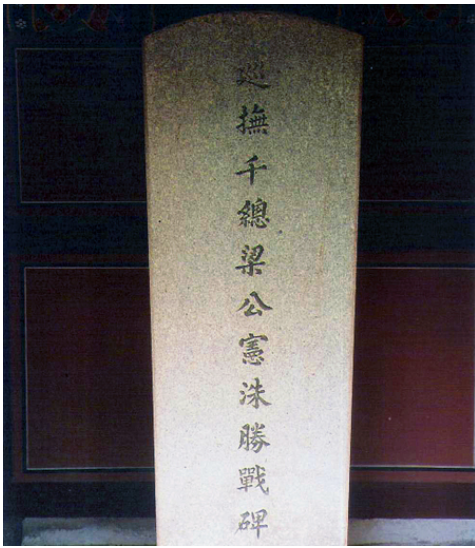 巡撫千總梁公憲洙勝戰碑